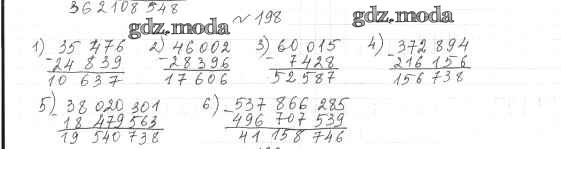 362108548
gdz.moda № 198 gdz.moda
1) 35 476 2) 46 002 3) 60 015 4) 372 894
- 24 839 - 28396 - 7428 - 216 156
10 637 17 606 52 587 156 738
5) 38 020 301 6) 537 866 285
- 18 479563 - 496 707 539
19 540 738 41 158 746